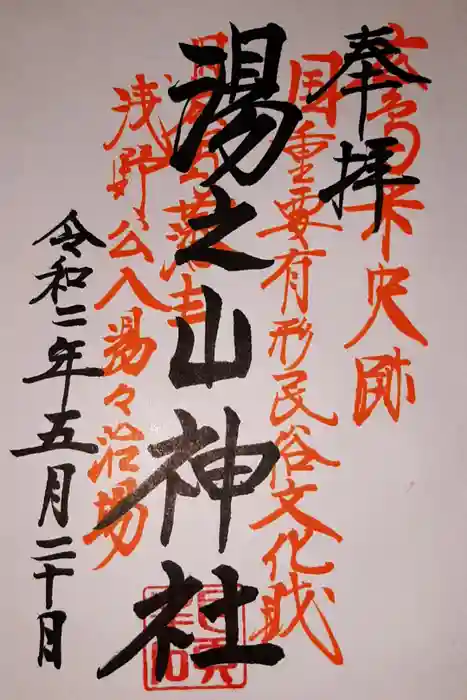 奉拝
史跡
国重要有形民俗文化財
湯之山神社
藩主
浅野公入湯々治場
令和二年五月二十日